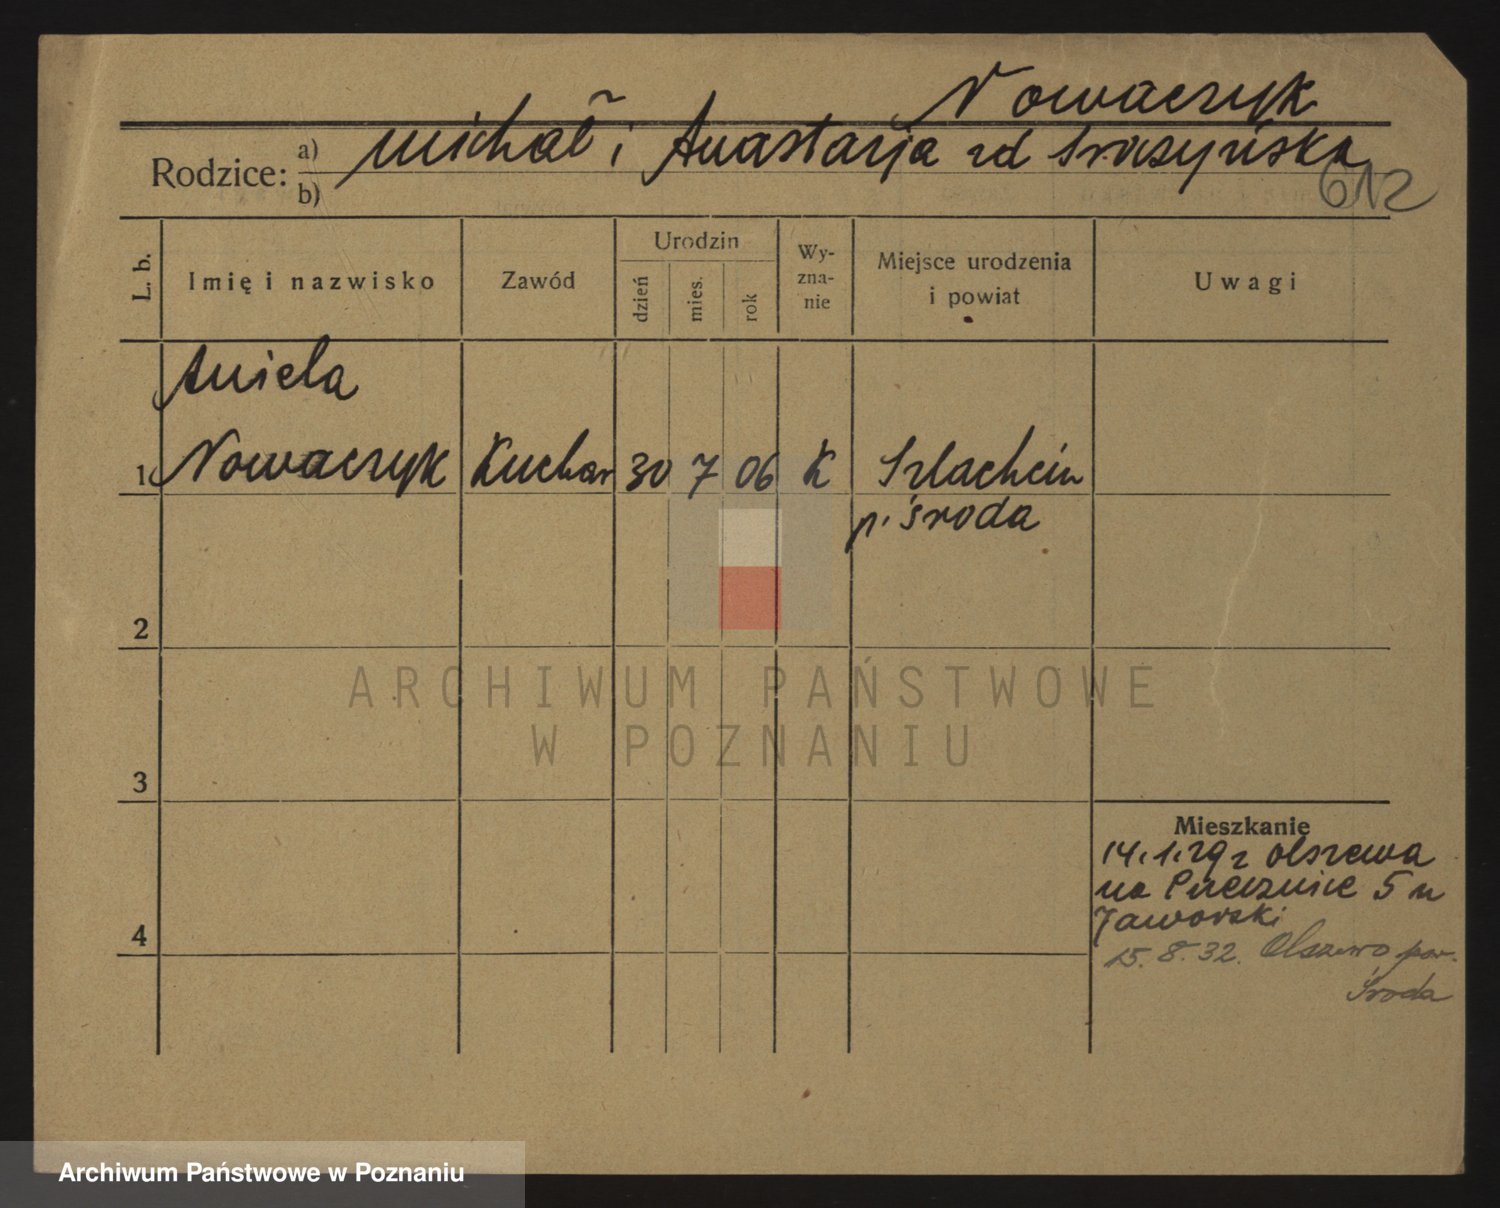 Nowaczyk
Rodzice: a) Michał i Anastazja zd
b)
612
L. b.
Imię i nazwisko
Zawód
Urodzin
dzień
mies.
rok
Wy-
zna-
nie
Miejsce urodzenia
i powiat
Uwagi
Aniela
1 Nowaczyk Kuchar 30 7 06 K Szlachcin
p. Środa
2
3
4
Mieszkanie
14.1.29 z Olszewa
na 5 u
Jaworski
15. 8. 32. Olszewo pow.
Środa
ARCHIWUM PAŃSTWOWE
W POZNANIU
Archiwum Państwowe w Poznaniu